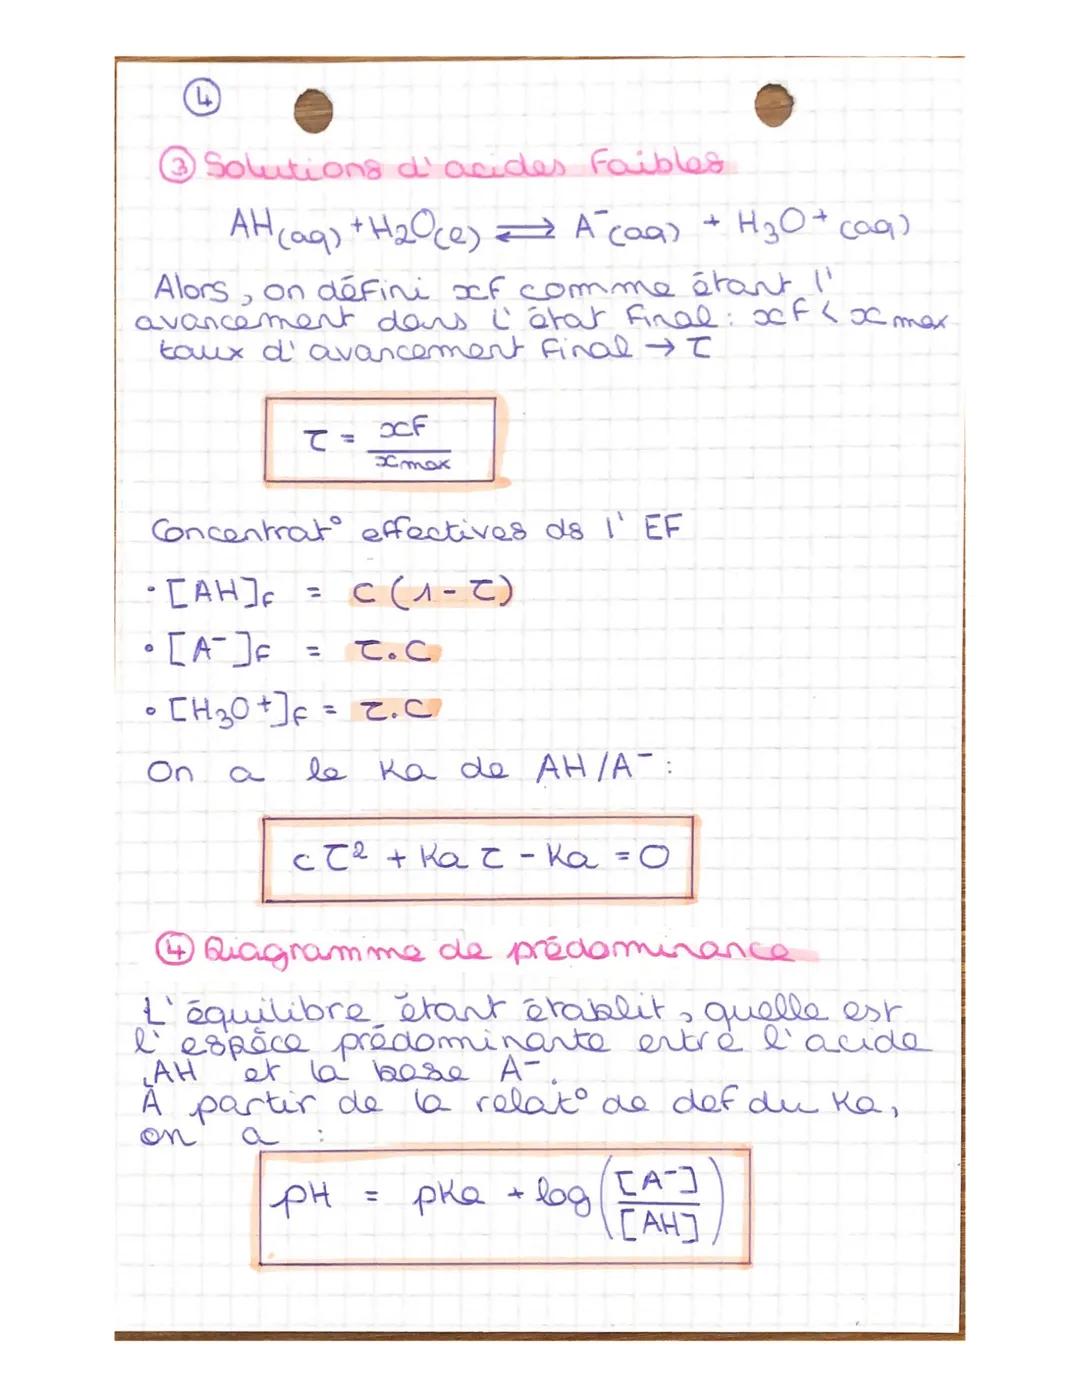 4
③ Solutions d'acides faibles
AH(aq) + H2O(l) ⇌ A⁻(aq) + H3O+ (aq)
Alors, on défini xf comme étant l'
avancement dans l'état final: xf < xmax
taux d'avancement final → τ
τ = xf / xmax
Concentrat° effectives ds l' EF
• [AH]f = c (1-τ)
• [A⁻]f = τ.c
• [H3O+]f = τ.c
On a le Ka de AH/A⁻:
cτ² + Ka τ - Ka = 0
④ Diagramme de prédominance
L'équilibre étant établit, quelle est
l'espèce prédominante entre l'acide
AH et la base A⁻.
À partir de la relat° de def du Ka,
on a :
pH = pKa + log([A⁻]/[AH])